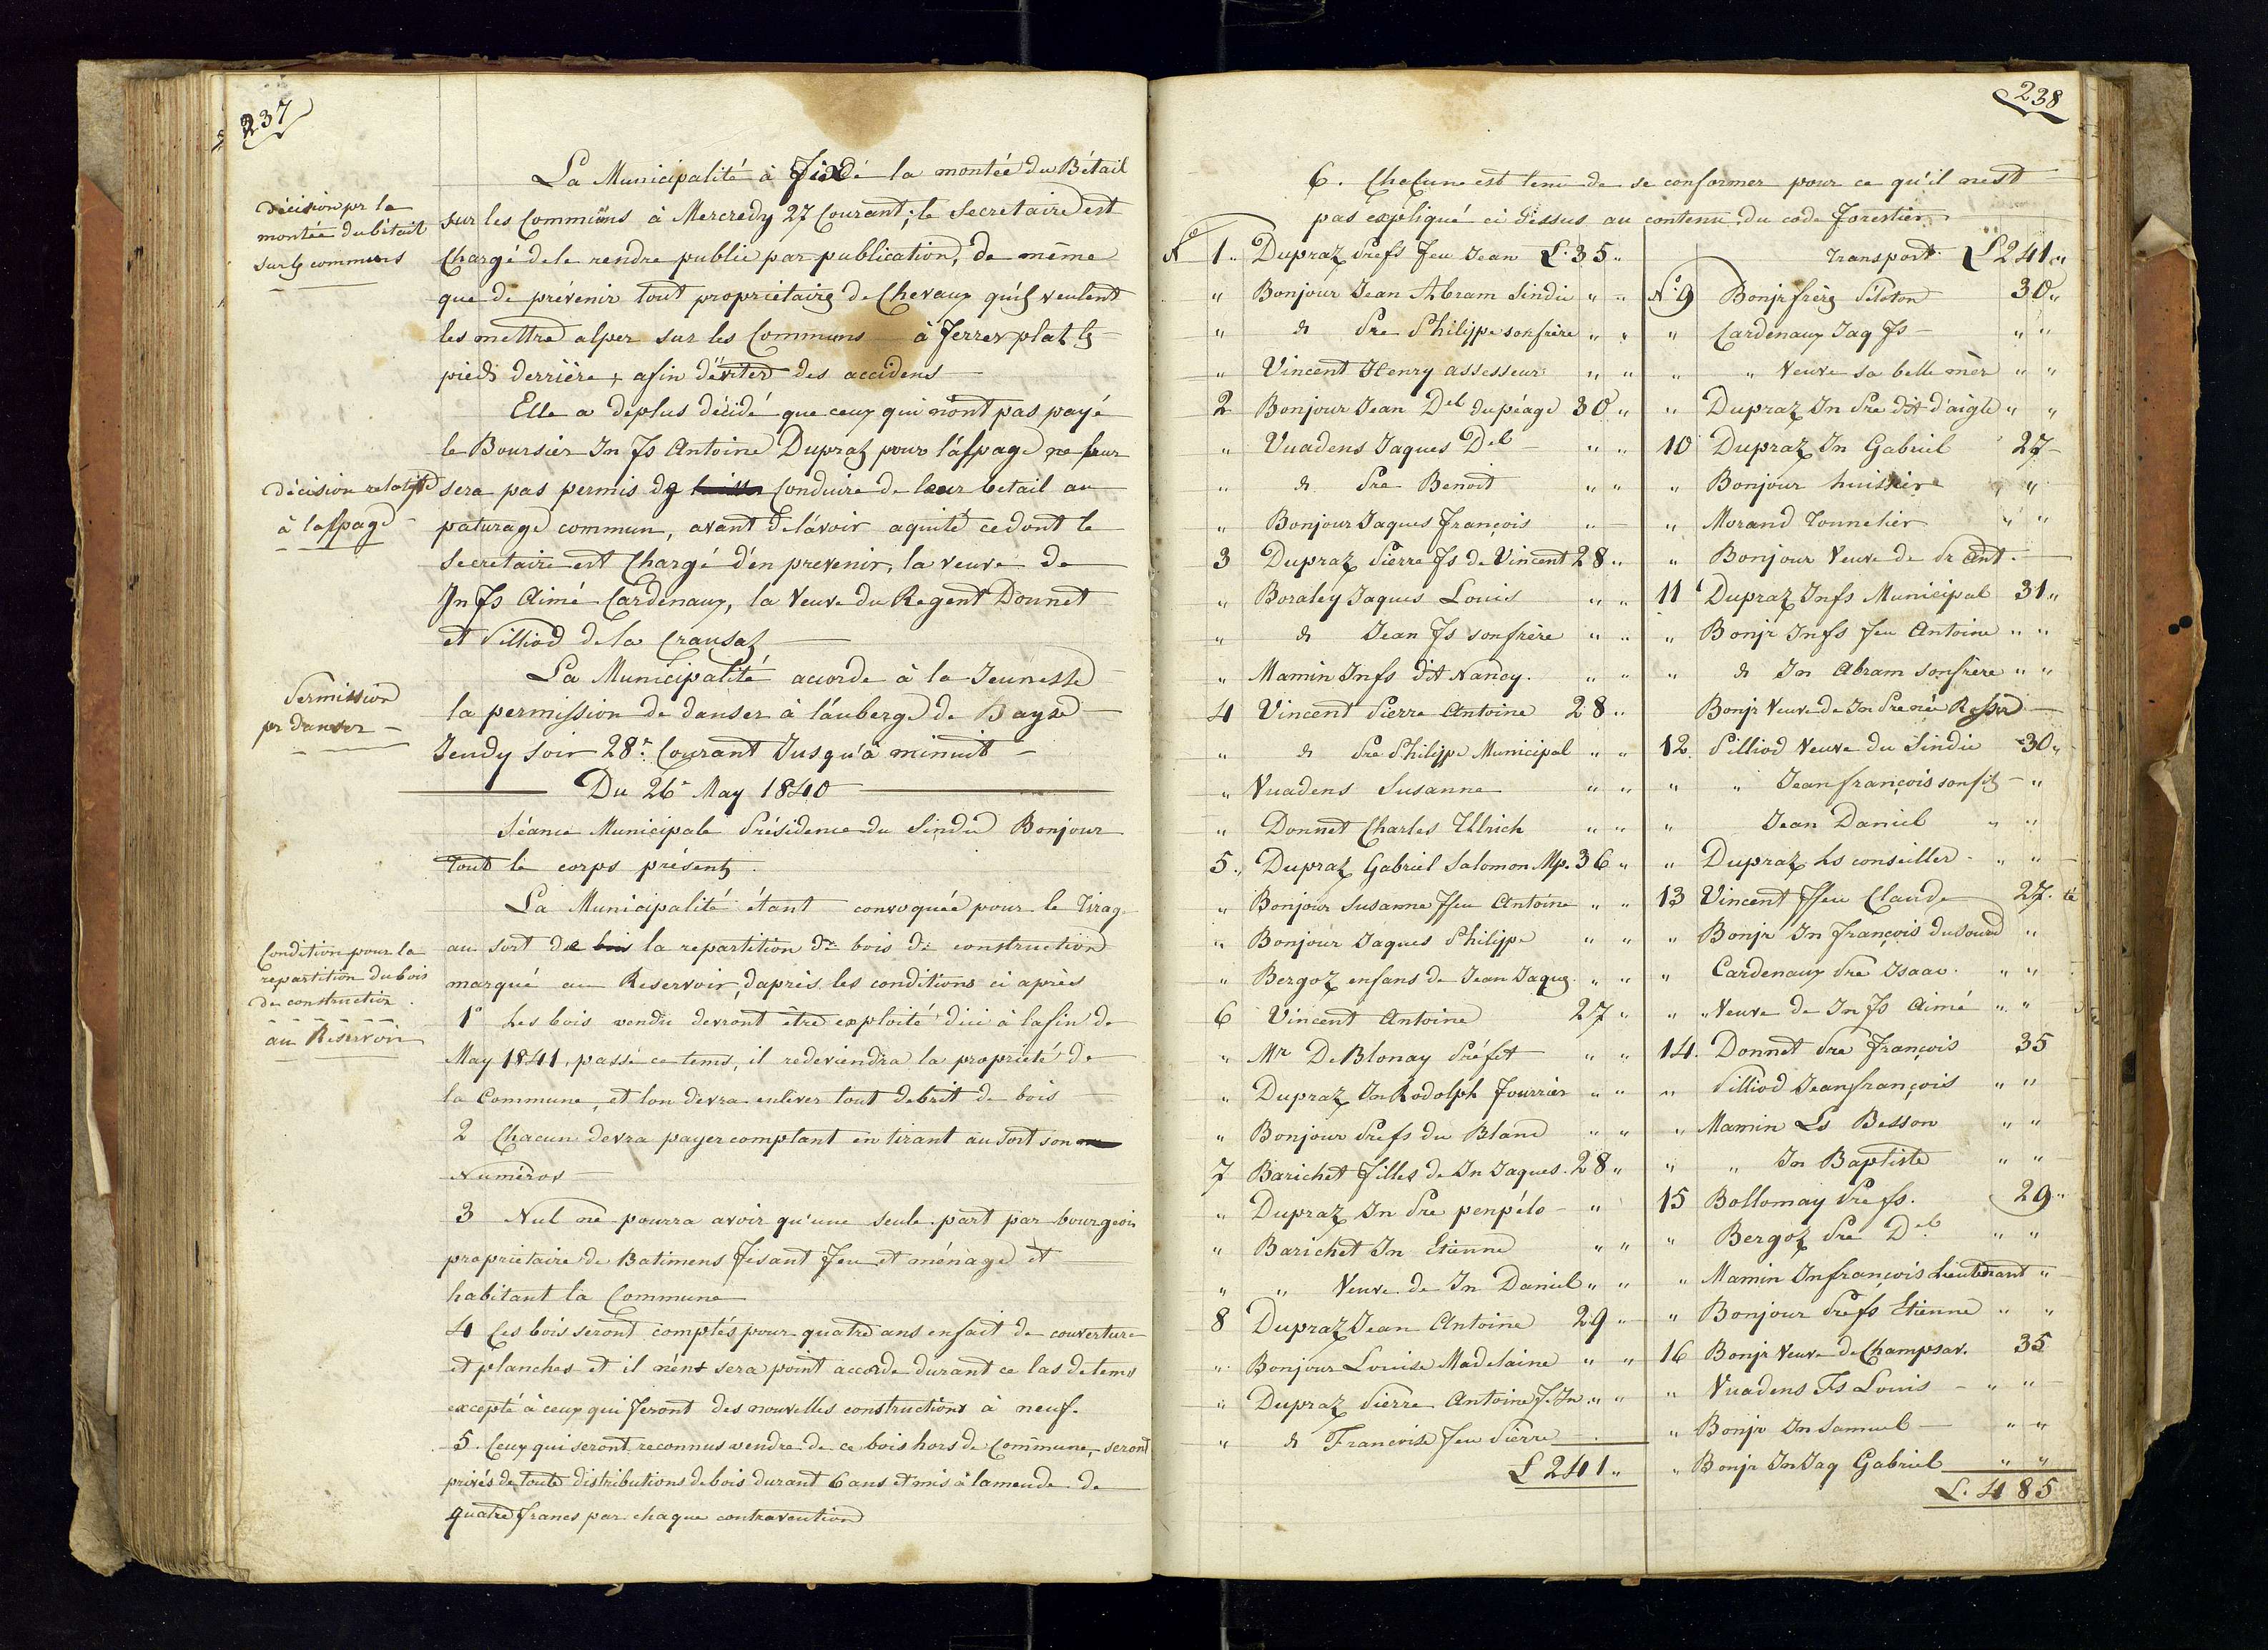 237
La Municipalité à fixé la montée du Bétail
décision pr la
montée du bétail
sur ls communs
sur les Communs à Mercredy 27 Courant; le Secretaire est
Chargé de le rendre public par publication, de même
que de prévenir tout propriétaire de Chevaux qu'ils veulent
les mettre alper sur les Communs à ferrer plat ls
pieds derrière, afin d'éviter des accidens
Elle a deplus décidé que ceux qui n'ont pas payé
le Boursier Jn Fs Antoine Dupraz pour l'afpage ne leur
décision relative
à lafpage
sera pas permis de Conduire de leur betail au
paturage commun, avant de l'avoir aquité ce dont le
Secretaire est Chargé d'en prevenir, la veuve de
Jn Fs Aimé Cardenaux, la Veuve du Regent Donnet
et Pilliod de la Crausaz
La Municipalité accorde à la Jeunesse
Permission
pr danser
la permission de danser à l'auberge de Bayse
Jeudy soir 28e Courant Jusqu'à minuit
Du 26e May 1840
Séance Municipale Présidence du Sindic Bonjour
tout le corps présent
La Municipalité étant convoquée pour le Tirag
Condition pour la
repartition du bois
de construction
au Reservoir
au sort de bois la repartition de bois de construction
marqué au Reservoir, daprès les conditions ci après
1o Les bois vendu devront être exploité d'ici à la fin de
May 1841, passé ce tems, il redeviendra la propriété de
la Commune, et l'on devra enlever tout debrit de bois
2 Chacun devra payer comptant en tirant au Sort son
Numéros
3 Nul ne pourra avoir qu'une seule part par bourgeois
propriétaire de Batimens fesant feu et ménage et
habitant la Commune
4 Ces bois seront comptés pour quatre ans en fait de couverture
et planches et il n'en sera point accordé durant ce las de tems
excepté à ceux qui feront des nouvelles constructions à neuf.
5. Ceux qui seront reconnus vendre de ce bois hors de Commune, seront
privés de toute distributions de bois durant 6 ans et mis à lamende de
quatre francs par chaque contravention
238
6. Chacune est tenu de se conformer pour ce qu'il n'est
pas expliqué ci dessus au contenu du code forestier
No 1 " Dupraz Prefs feu Jean L. 35 "
" Bonjour Jean Abram Sindic " "
" d Pre Philippe son frère " "
" Vincent Henry assesseur " "
2 Bonjour Jean Del du péage 30 "
" Vuadens Jaques Del " "
" d Pre Benoit " "
" Bonjour Jaques François "
3 Dupraz Pierre Fs de Vincent 28 "
" Boraley Jaques Louis " "
" d Jean Fs son frère " "
" Mamin Jn fs dit Nancy. " "
4 Vincent Pierre Antoine 28 "
" d Pre Philippe Municipal " "
" Vuadens Susanne " "
" Donnet Charles Ullrich " "
5 " Dupraz Gabriel Salomon Mp. 36 "
" Bonjour Susanne ffeu Antoine " "
" Bonjour Jaques Philippe " "
" Bergoz enfans de Jean Jaques " "
6 Vincent Antoine 27 "
" Mr De Blonay Préfet " "
" Dupraz Jn Rodolph fourrier " "
" Bonjour Prefs du Blanc " "
7 Barichet filles de Jn Jaques. 28 "
" Dupraz Jn Pre penpélo "
" Barichet Jn Etienne " "
" " Veuve de Jn Daniel " "
8 Dupraz Jean Antoine 29 "
" Bonjour Louise Madelaine " "
" Dupraz Pierre Antoine f. Jn " "
" d Francoise feu Pierre
L 241 "
Transport L 241 "
No 9 Bonjr frères Péloton 30 "
" Cardenaux Jaq Fs " "
" " Veuve sa belle mèr " "
" Dupraz Jn Pre dit d'aigle " "
10 Dupraz Jn Gabriel 27
" Bonjour huissier " "
" Morand Tonnelier " "
" Bonjour Veuve de Pr Ant.
11 Dupraz Jn fs Municipal 31 "
" Bonjr Jn fs feu Antoine " "
" d Jn Abram son frère " "
Bonjr Veuve de Jn Pre née
12. Pilliod Veuve du Sindic 30 "
" " Jean françois son fils "
" Jean Daniel " "
" Dupraz Ls conseiller " "
13 Vincent ffeu Claude 27.
" Bonjr Jn françois du Sourd "
" Cardenaux Pre Isaac. " "
" " Veuve de Jn Fs Aimé " "
14. Donnet Pre françois 35
" Pilliod Jean françois " "
" Mamin Ls Besson " "
" " Jn Baptiste " "
15 Bollomay Prefs. 29 "
" Bergoz Pre Del " "
" Mamin Jn françois Lieutenant "
" Bonjour Prefs Etienne " "
16 Bonjr Veuve de Champsav. 35
" Vuadens Fs Louis " "
" Bonjr Jn Samuel " "
" Bonjr Jn Jaq Gabriel " "
L. 485